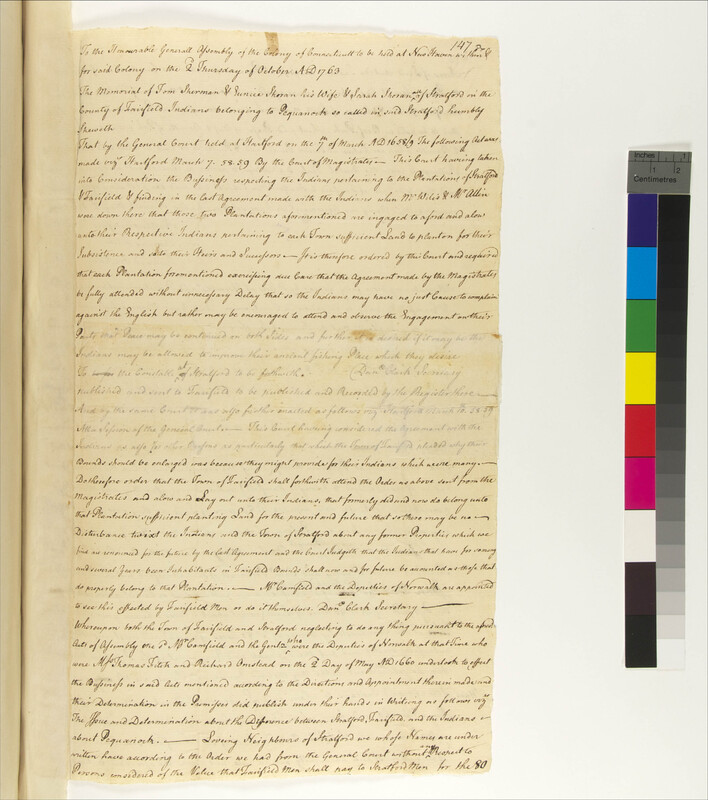 147. a
To the Honourable Generall Assembly of the Colony of Connecticutt to be held at New Haven within &
for said Colony on the 2d Thursday of October AD 1763
The Memorial of Tom Sherman & Eunice Shoran his Wife & Sarah Shoran all of Stratford in the
County of Fairfield Indians belonging to Pequanock so called in said Stratford humbly
Sheweth
That by the General Court held at Hartford on the 7th of March AD 1658/9 The following Act was
made viz Hartford March 7. 58.59 By the Court of Magistrates — This Court having taken
into Consideration the Bussiness respecting the Indians pertaining to the Plantations of Stratford
& Fairfield & finding in the Last Agreement made with the Indians when Mr Wils & Mr Allin
were down there that those two Plantations aforementioned are ingaged to aford and alow
unto their Respective Indians pertaining to each Town sufficient Land to plant on for their
Subsistence and so to their Heirs and Sucessors — It is therefore ordered by this Court and required
that each Plantation forementioned exercising due Care that the Agreement made by the Magistrates
be fully attended without unnecessary Delay that so the Indians may have no just Cause to complain
against the English but rather may be encouraged to attend and observe the Engagement on their
Parts that Peace may be continued on both Sides and further it is desired if it may be the
Indians may be allowed to improve their antient fishing Place which they desire
To the Constable of Stratford to be forthwith. Danll Clark Secretary
published and sent to Fairfield to be published and Recorded by the Register there —
And by the same Court it was also further enacted as follows viz Hartford March 58.59
At a Session of the General Court — This Court having considered the Agreement with the
Indians as also that the Town of Fairfield why their
Bounds should be enlarged was because they might provide for their Indians which were many. —
Do therefore order that the Town of Fairfield shall forthwith attend the Order as above sent from the
Magistrates and alow and Lay out unto their Indians, that formerly did and now do belong unto
that Plantation sufficient planting Land for the present and future that so there may be no —
Disturbance twixt the Indians and the Town of Stratford about any former Properties which we
find are renounced for the future by the Last Agreement and the Court Judgeth that the Indians that have for so many
and several Years been Inhabitants in Fairfield Bounds shall now and for future be accounted as those that
do properly belong to that Plantation. — Mr Camfield and the Deputies of Norwalk are appointed
to see this effected by Fairfield Men or do it themselves. Danll Clark Secretary —
Whereupon both the Town of Fairfield and Stratford neglecting to do any thing pursuant to the aforesd
Acts of Assembly the sd Mr Camfield and the Gentn who were the Deputies of Norwalk at that Time who
were Messrs Thomas Fitch and Richard Omstead on the 2d Day of May AD 1660 undertook to effect
the Bussiness in said Acts mentioned according to the Directions and Appointment therein made and
their Determination in the Premises did publish under their hands in Writing as follows viz
The Issue and Determination about the Diference between Stratford, Fairfield and the Indians —
about Pequanock. — Loveing Neighbours of Stratford we whose Names are under
written have according to the Order we had from the General Court without any Respect to
Persons considered of the Value that Fairfield Men shall pay to Stratford Men for the 80
Inches 1 2
Centimetres